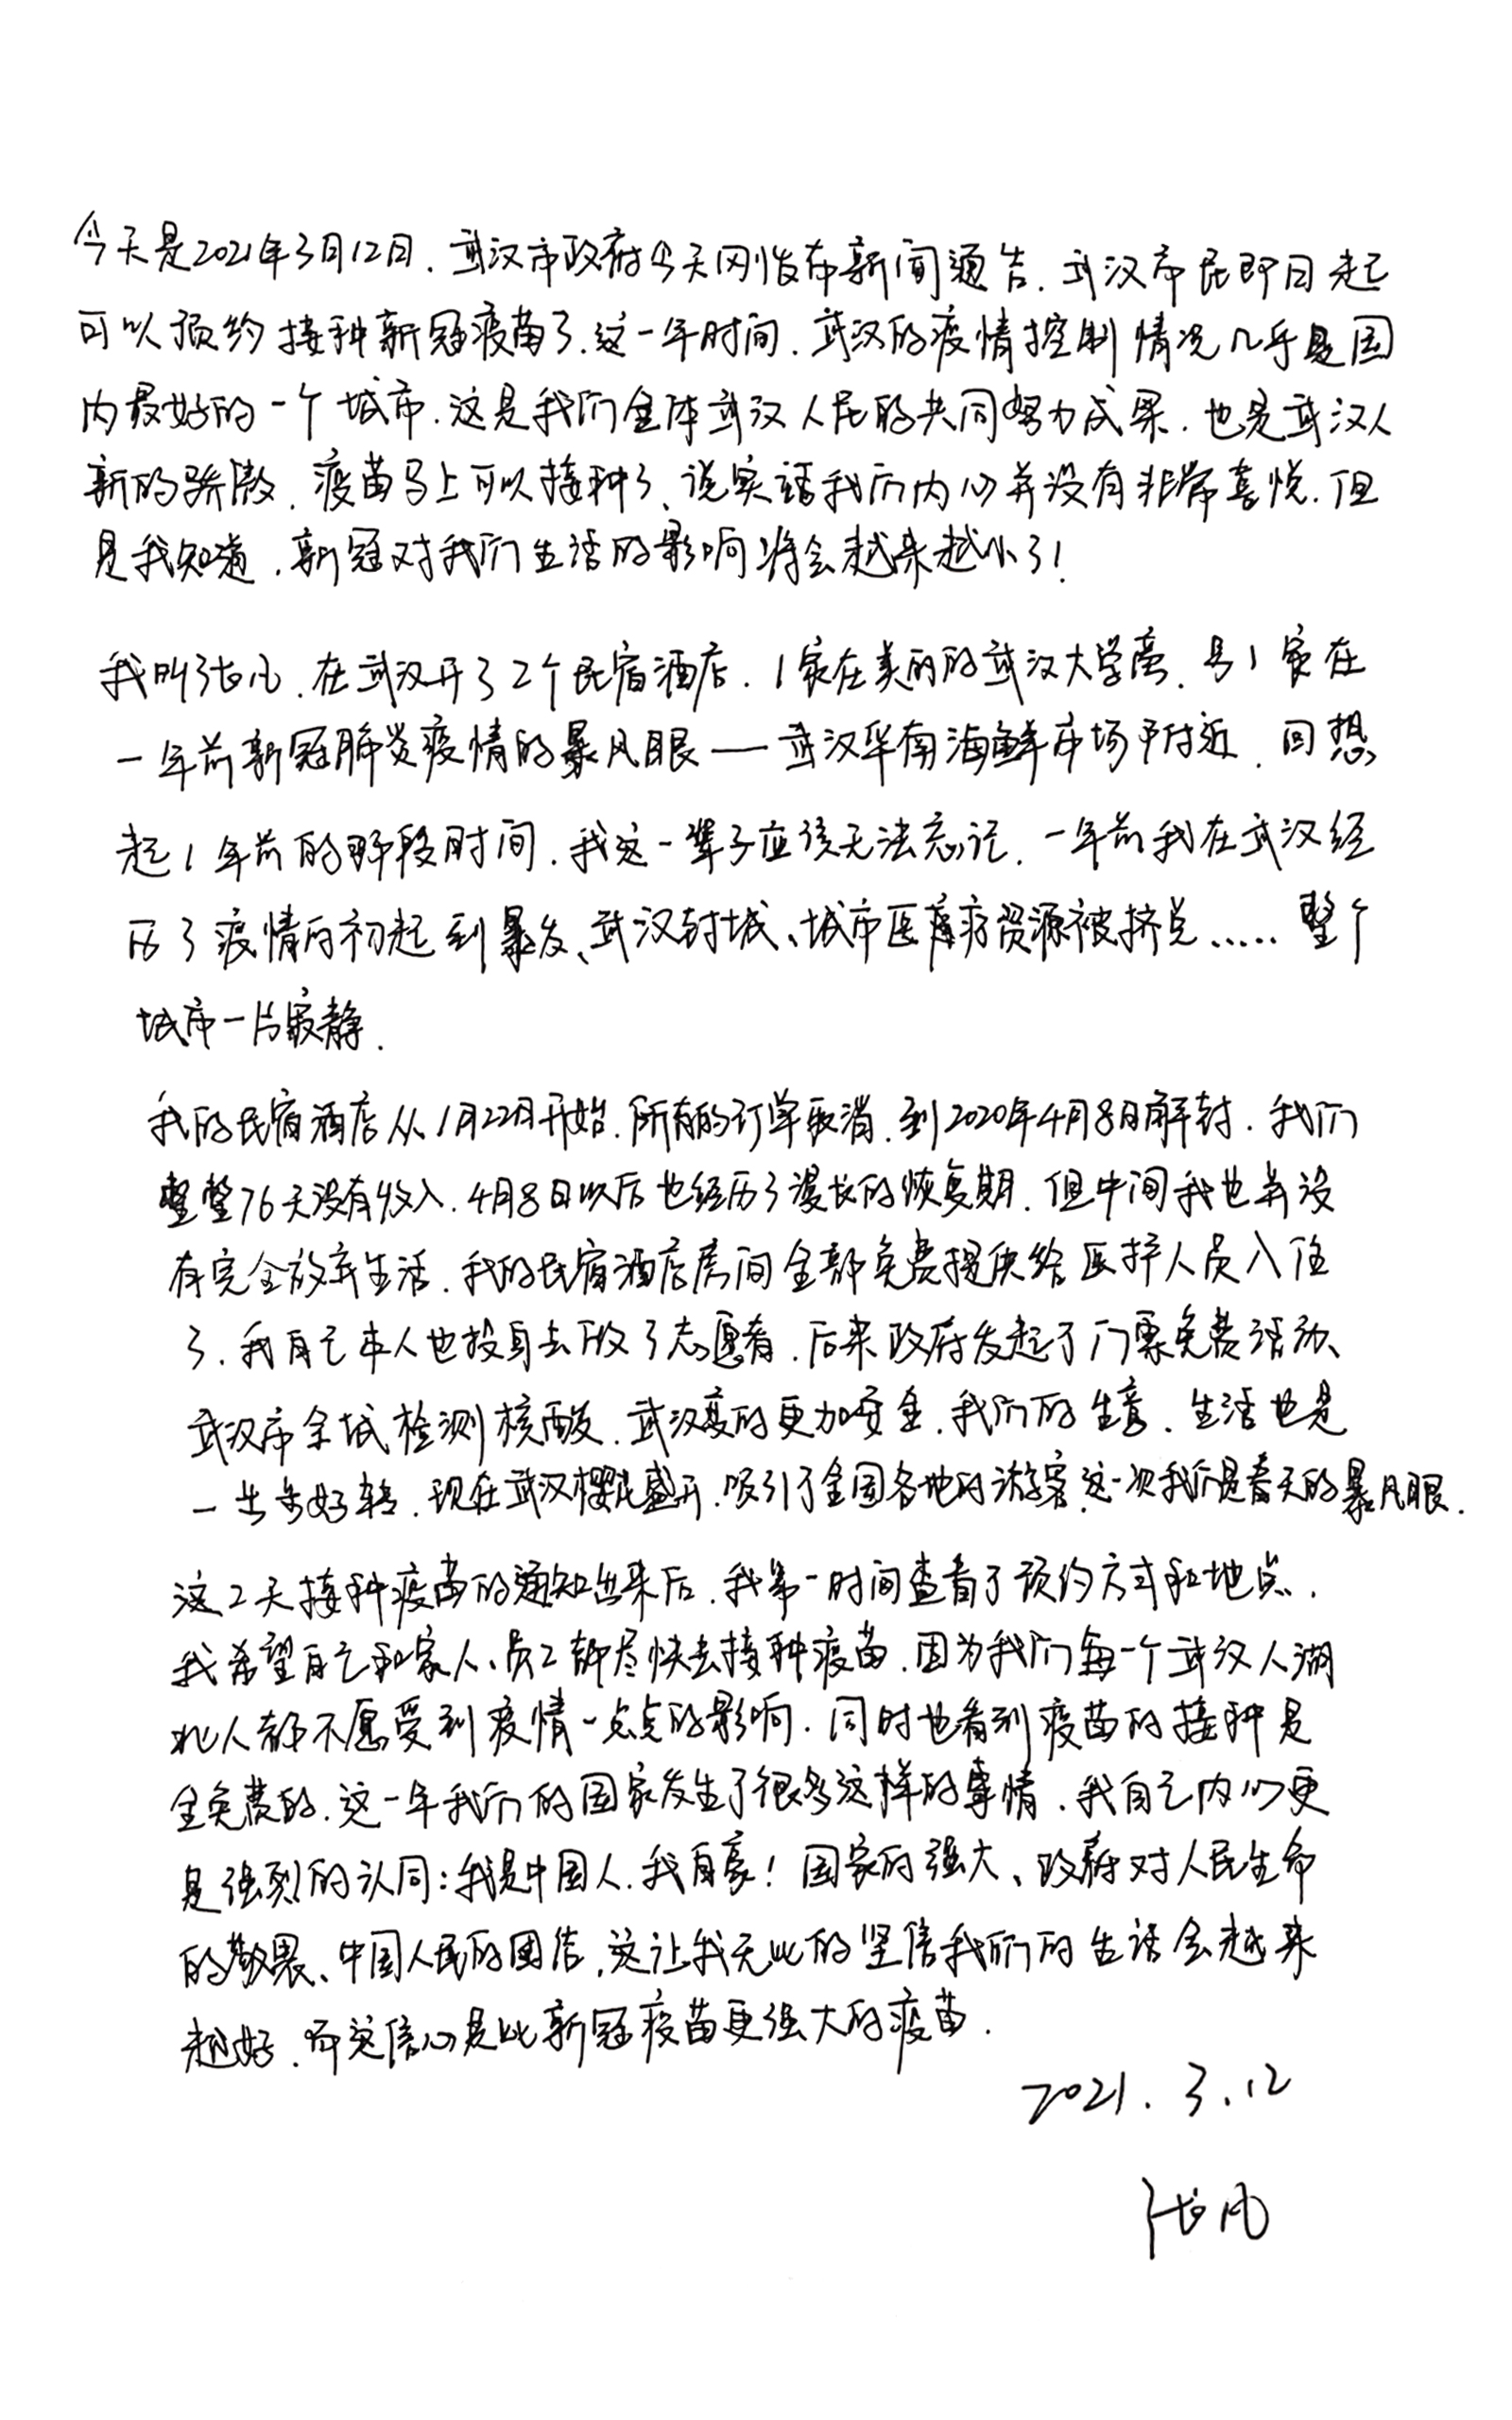 今天是2021年3月12日.武汉市政府今天刚发布新闻通告.武汉市民即日起
可以预约接种新冠疫苗了.这一年时间.武汉的疫情控制情况几乎是国
内最好的一个城市.这是我们全体武汉人民的共同努力成果.也是武汉人
新的骄傲.疫苗马上可以接种了、说实话我们内心并没有非常喜悦.但
是我知道.新冠对我们生活的影响将会越来越小了!
我叫张凡.在武汉开了2个民宿酒店.1家在美丽的武汉大学旁.另1家在
一年前新冠肺炎疫情的暴风眼——武汉华南海鲜市场附近.回想
起1年前的那段时间.我这一辈子应该无法忘记.一年前我在武汉经
历了疫情的初起到暴发、武汉封城、城市医疗资源被挤兑.....整个
城市一片寂静.
我的民宿酒店从1月22日开始.所有的订单取消.到2020年4月8日解封.我们
整整76天没有收入.4月8日以后也经历了漫长的恢复期.但中间我也并没
有完全放弃生活.我的民宿酒店房间全部免费提供给医护人员入住
了.我自己本人也投身去做了志愿者.后来政府发起了门票免费活动、
武汉市全城检测核酸.武汉变的更加安全.我们的生意.生活也是
一步步好转.现在武汉樱花盛开.吸引了全国各地的游客.这一次我们是春天的暴风眼.
这2天接种疫苗的通知出来后.我第一时间查看了预约方式和地点.
我希望自己和家人、员工都尽快去接种疫苗.因为我们每一个武汉人湖
北人都不愿受到疫情一点点的影响.同时也看到疫苗的接种是
全免费的.这一年我们的国家发生了很多这样的事情.我自己内心更
是强烈的认同:我是中国人.我自豪!国家的强大、政府对人民生命
的敬畏、中国人民的团结.这让我无比的坚信我们的生活会越来
越好.而这信心是比新冠疫苗更强大的疫苗.
2021.3.12
张凡